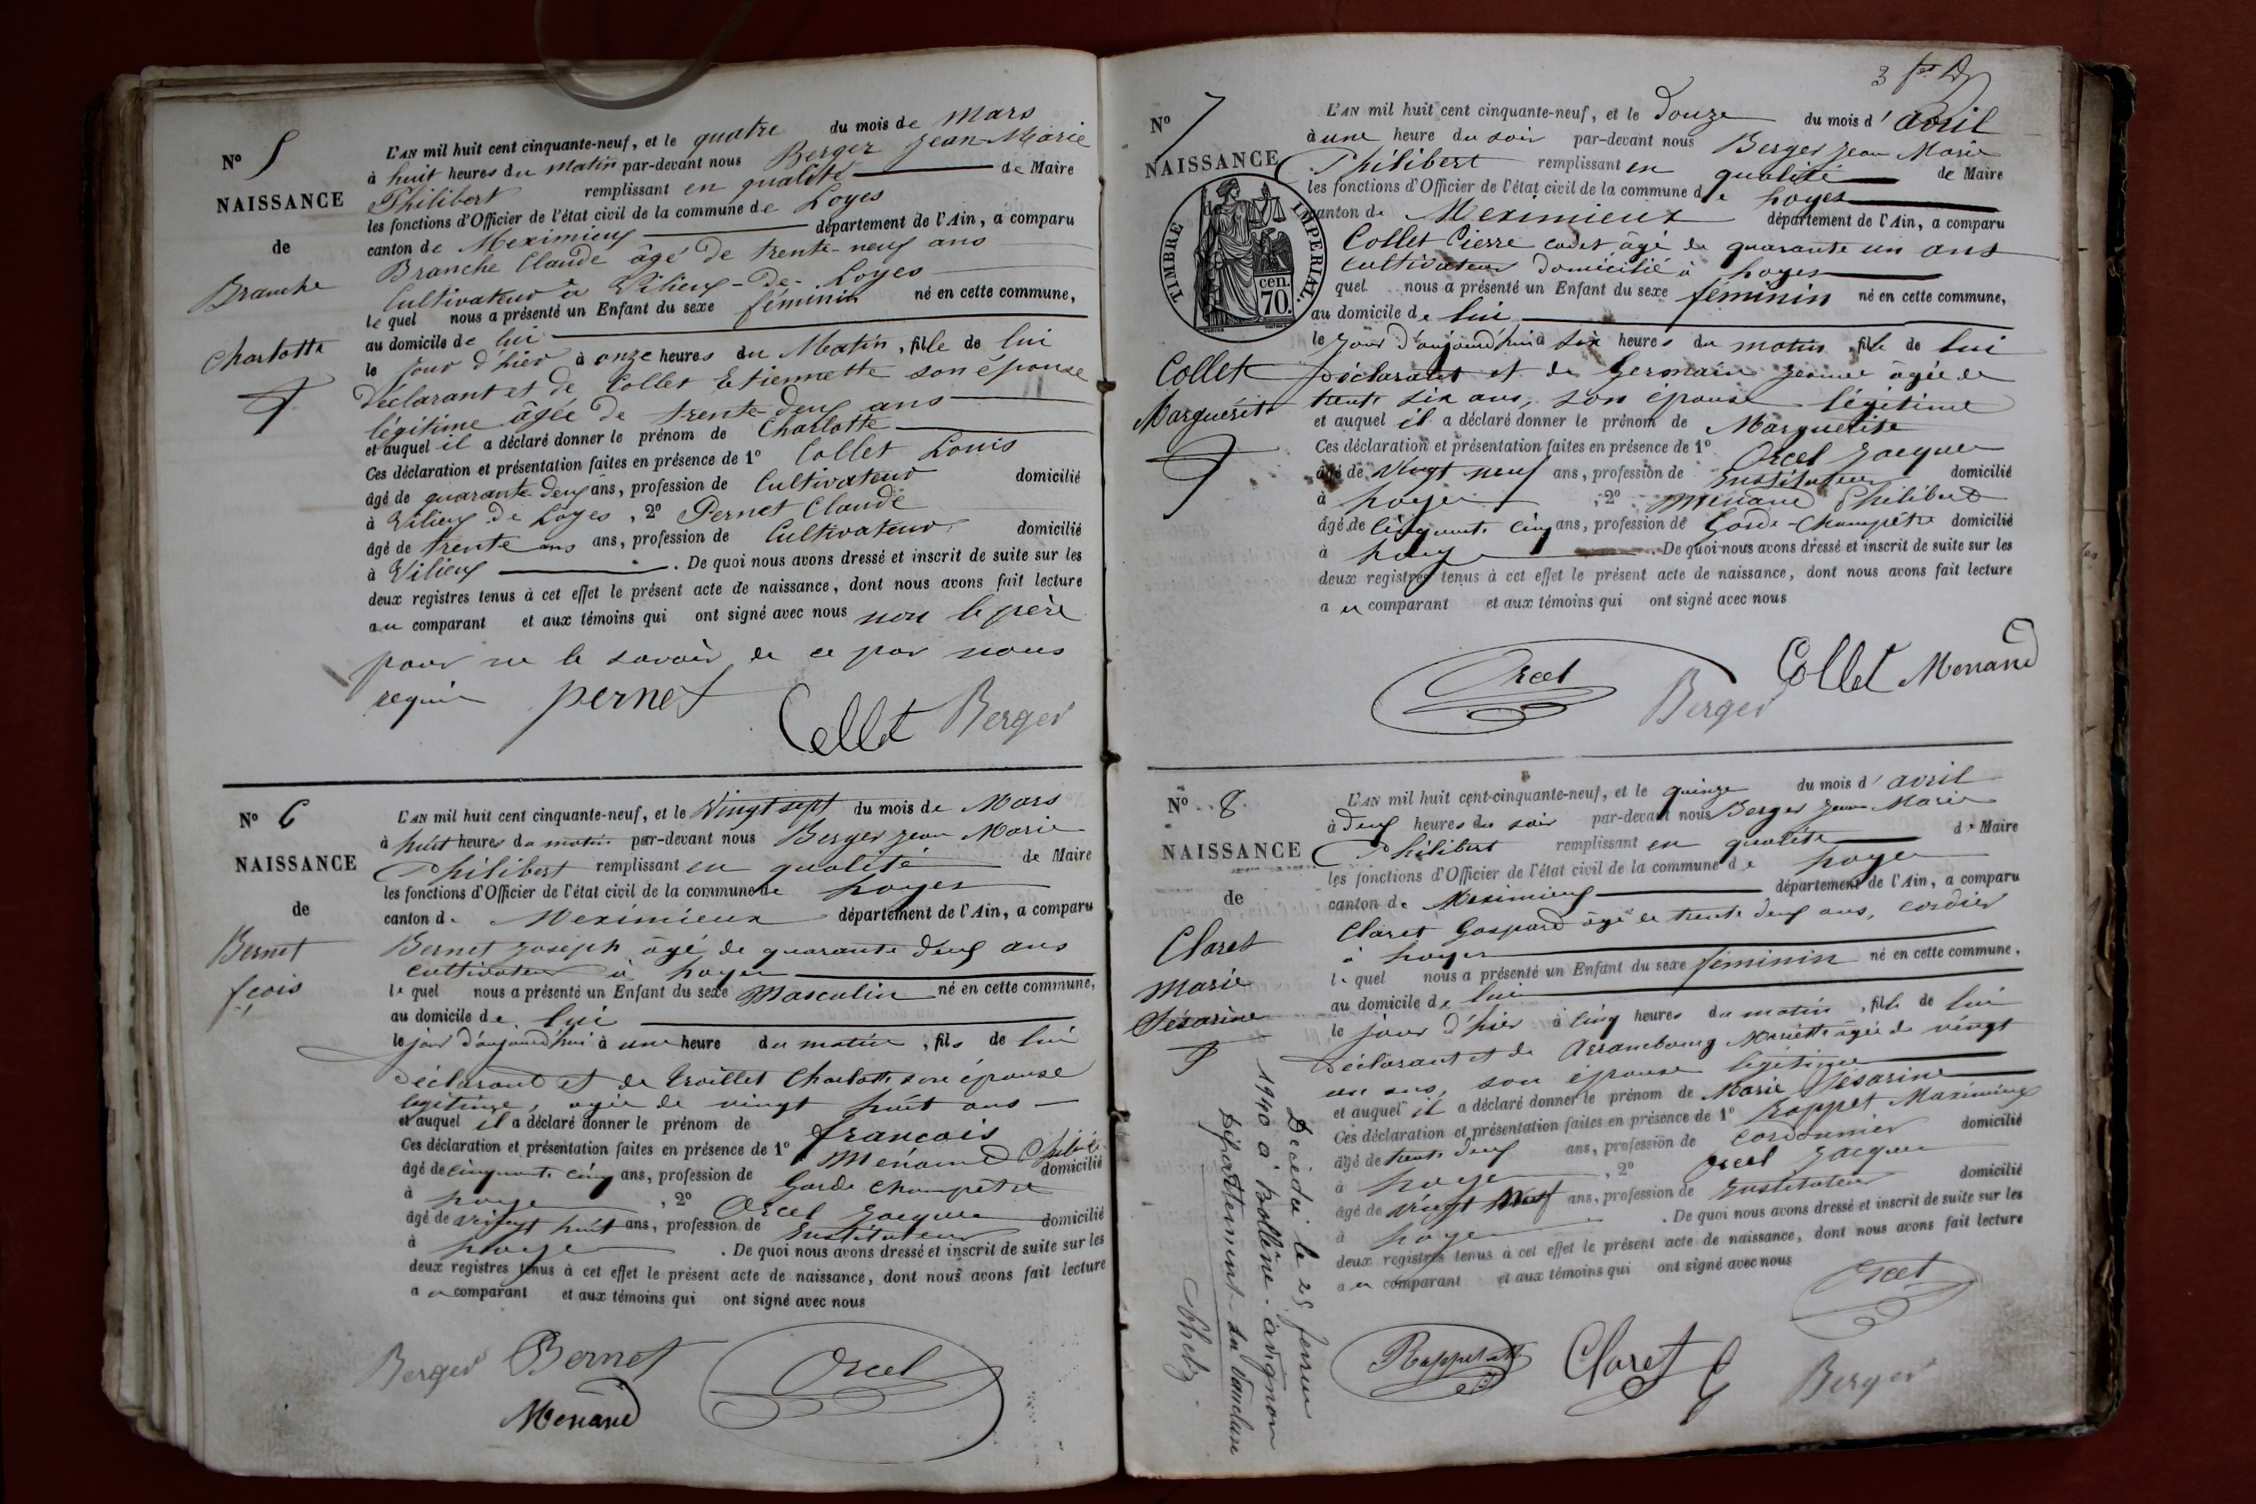 N° 5
NAISSANCE
de
Branche
Charlotte
L'AN mil huit cent cinquante-neuf, et le quatre du mois de Mars
à huit heures du matin par-devant nous Berger Jean Marie
Philibert remplissant en qualité de Maire
les fonctions d'Officier de l'état civil de la commune de Loyes
canton de Meximieux département de l'Ain, a comparu
Branche Claude âgé de trente-neuf ans
Cultivateur à Vilieux-de-Loyes
lequel nous a présenté un Enfant du sexe féminin né en cette commune,
au domicile de lui
le jour d'hier à onze heures du Matin, fille de lui
déclarant et de Collet Etiennette son épouse
légitime âgée de trente-deux ans
et auquel il a déclaré donner le prénom de Charlotte
Ces déclaration et présentation faites en présence de 1° Collet Louis
âgé de quarante deux ans, profession de Cultivateur domicilié
à Vilieux de Loyes, 2° Pernet Claude
âgé de trente ans ans, profession de Cultivateur domicilié
à Vilieux. De quoi nous avons dressé et inscrit de suite sur les
deux registres tenus à cet effet le présent acte de naissance, dont nous avons fait lecture
au comparant et aux témoins qui ont signé avec nous non le père
pour ne le savoir de ce par nous
requis pernet
Collet Berger
N° 6
NAISSANCE
de
Bernet
fçois
L'AN mil huit cent cinquante-neuf, et le Vingt sept du mois de Mars
à huit heures du matin par-devant nous Berger Jean Marie
Philibert remplissant en qualité de Maire
les fonctions d'Officier de l'état civil de la commune de Loyes
canton de Meximieux département de l'Ain, a comparu
Bernet Joseph âgé de quarante deux ans
cultivateur à Loyes
lequel nous a présenté un Enfant du sexe Masculin né en cette commune,
au domicile de lui
le jour d'aujourd'hui à une heure du matin, fils de lui
déclarant et de Troillet Charlotte son épouse
légitime, âgée de vingt huit ans
et auquel il a déclaré donner le prénom de francois
Ces déclaration et présentation faites en présence de 1° Menand
âgé de cinquante cinq ans, profession de Garde Champêtre domicilié
à Loyes, 2° Orcel Jacques
âgé de vingt huit ans, profession de Instituteur domicilié
à Loyes. De quoi nous avons dressé et inscrit de suite sur les
deux registres tenus à cet effet le présent acte de naissance, dont nous avons fait lecture
au comparant et aux témoins qui ont signé avec nous
Berger Bernet Orcel
Menand
3
N° 7
NAISSANCE
de
TIMBRE IMPERIAL.
cen. 70.
Collet
Marguérite
L'AN mil huit cent cinquante-neuf, et le Douze du mois d'avril
à une heure du soir par-devant nous Berger Jean Marie
Philibert remplissant en qualité de Maire
les fonctions d'Officier de l'état civil de la commune de Loyes
canton de Meximieux département de l'Ain, a comparu
Collet Pierre cadet âgé de quarante un ans
cultivateur domicilié à Loyes
quel nous a présenté un Enfant du sexe féminin né en cette commune,
au domicile de lui
le jour d'aujourd'hui à six heures du matin, fille de lui
Déclarant et de Germain Jeanne âgée de
trente six ans, son épouse légitime
et auquel il a déclaré donner le prénom de Marguerite
Ces déclaration et présentation faites en présence de 1° Orcel Jacques
âgé de vingt neuf ans, profession de Instituteur domicilié
à Loyes, 2° Menand Philibert
âgé de cinquante cinq ans, profession de Garde-Champêtre domicilié
à Loyes. De quoi nous avons dressé et inscrit de suite sur les
deux registres tenus à cet effet le présent acte de naissance, dont nous avons fait lecture
au comparant et aux témoins qui ont signé avec nous
Orcel Berger Collet Menand
N° 8
NAISSANCE
de
Claret
Marie
Césarine
L'AN mil huit cent cinquante-neuf, et le quinze du mois d'avril
à deux heures du soir par-devant nous Berger Jean Marie
Philibert remplissant en qualité de Maire
les fonctions d'Officier de l'état civil de la commune de Loyes
canton de Meximieux département de l'Ain, a comparu
Claret Gaspard âgé de trente deux ans, cordier
à Loyes
lequel nous a présenté un Enfant du sexe féminin né en cette commune,
au domicile de lui
le jour d'hier à cinq heures du matin, fille de lui
Déclarant et de Arrambourg Mariette âgée de vingt
un ans, son épouse légitime
et auquel il a déclaré donner le prénom de Marie Césarine
Ces déclaration et présentation faites en présence de 1° Rappet Maximin
âgé de trente deux ans, profession de cordonnier domicilié
à Loyes, 2° Orcel Jacques
âgé de vingt neuf ans, profession de Instituteur domicilié
à Loyes. De quoi nous avons dressé et inscrit de suite sur les
deux registres tenus à cet effet le présent acte de naissance, dont nous avons fait lecture
au comparant et aux témoins qui ont signé avec nous
Orcel
Claret Berger
Décédée le 25 février
1940 à Bollène-avignon
Département du Vaucluse